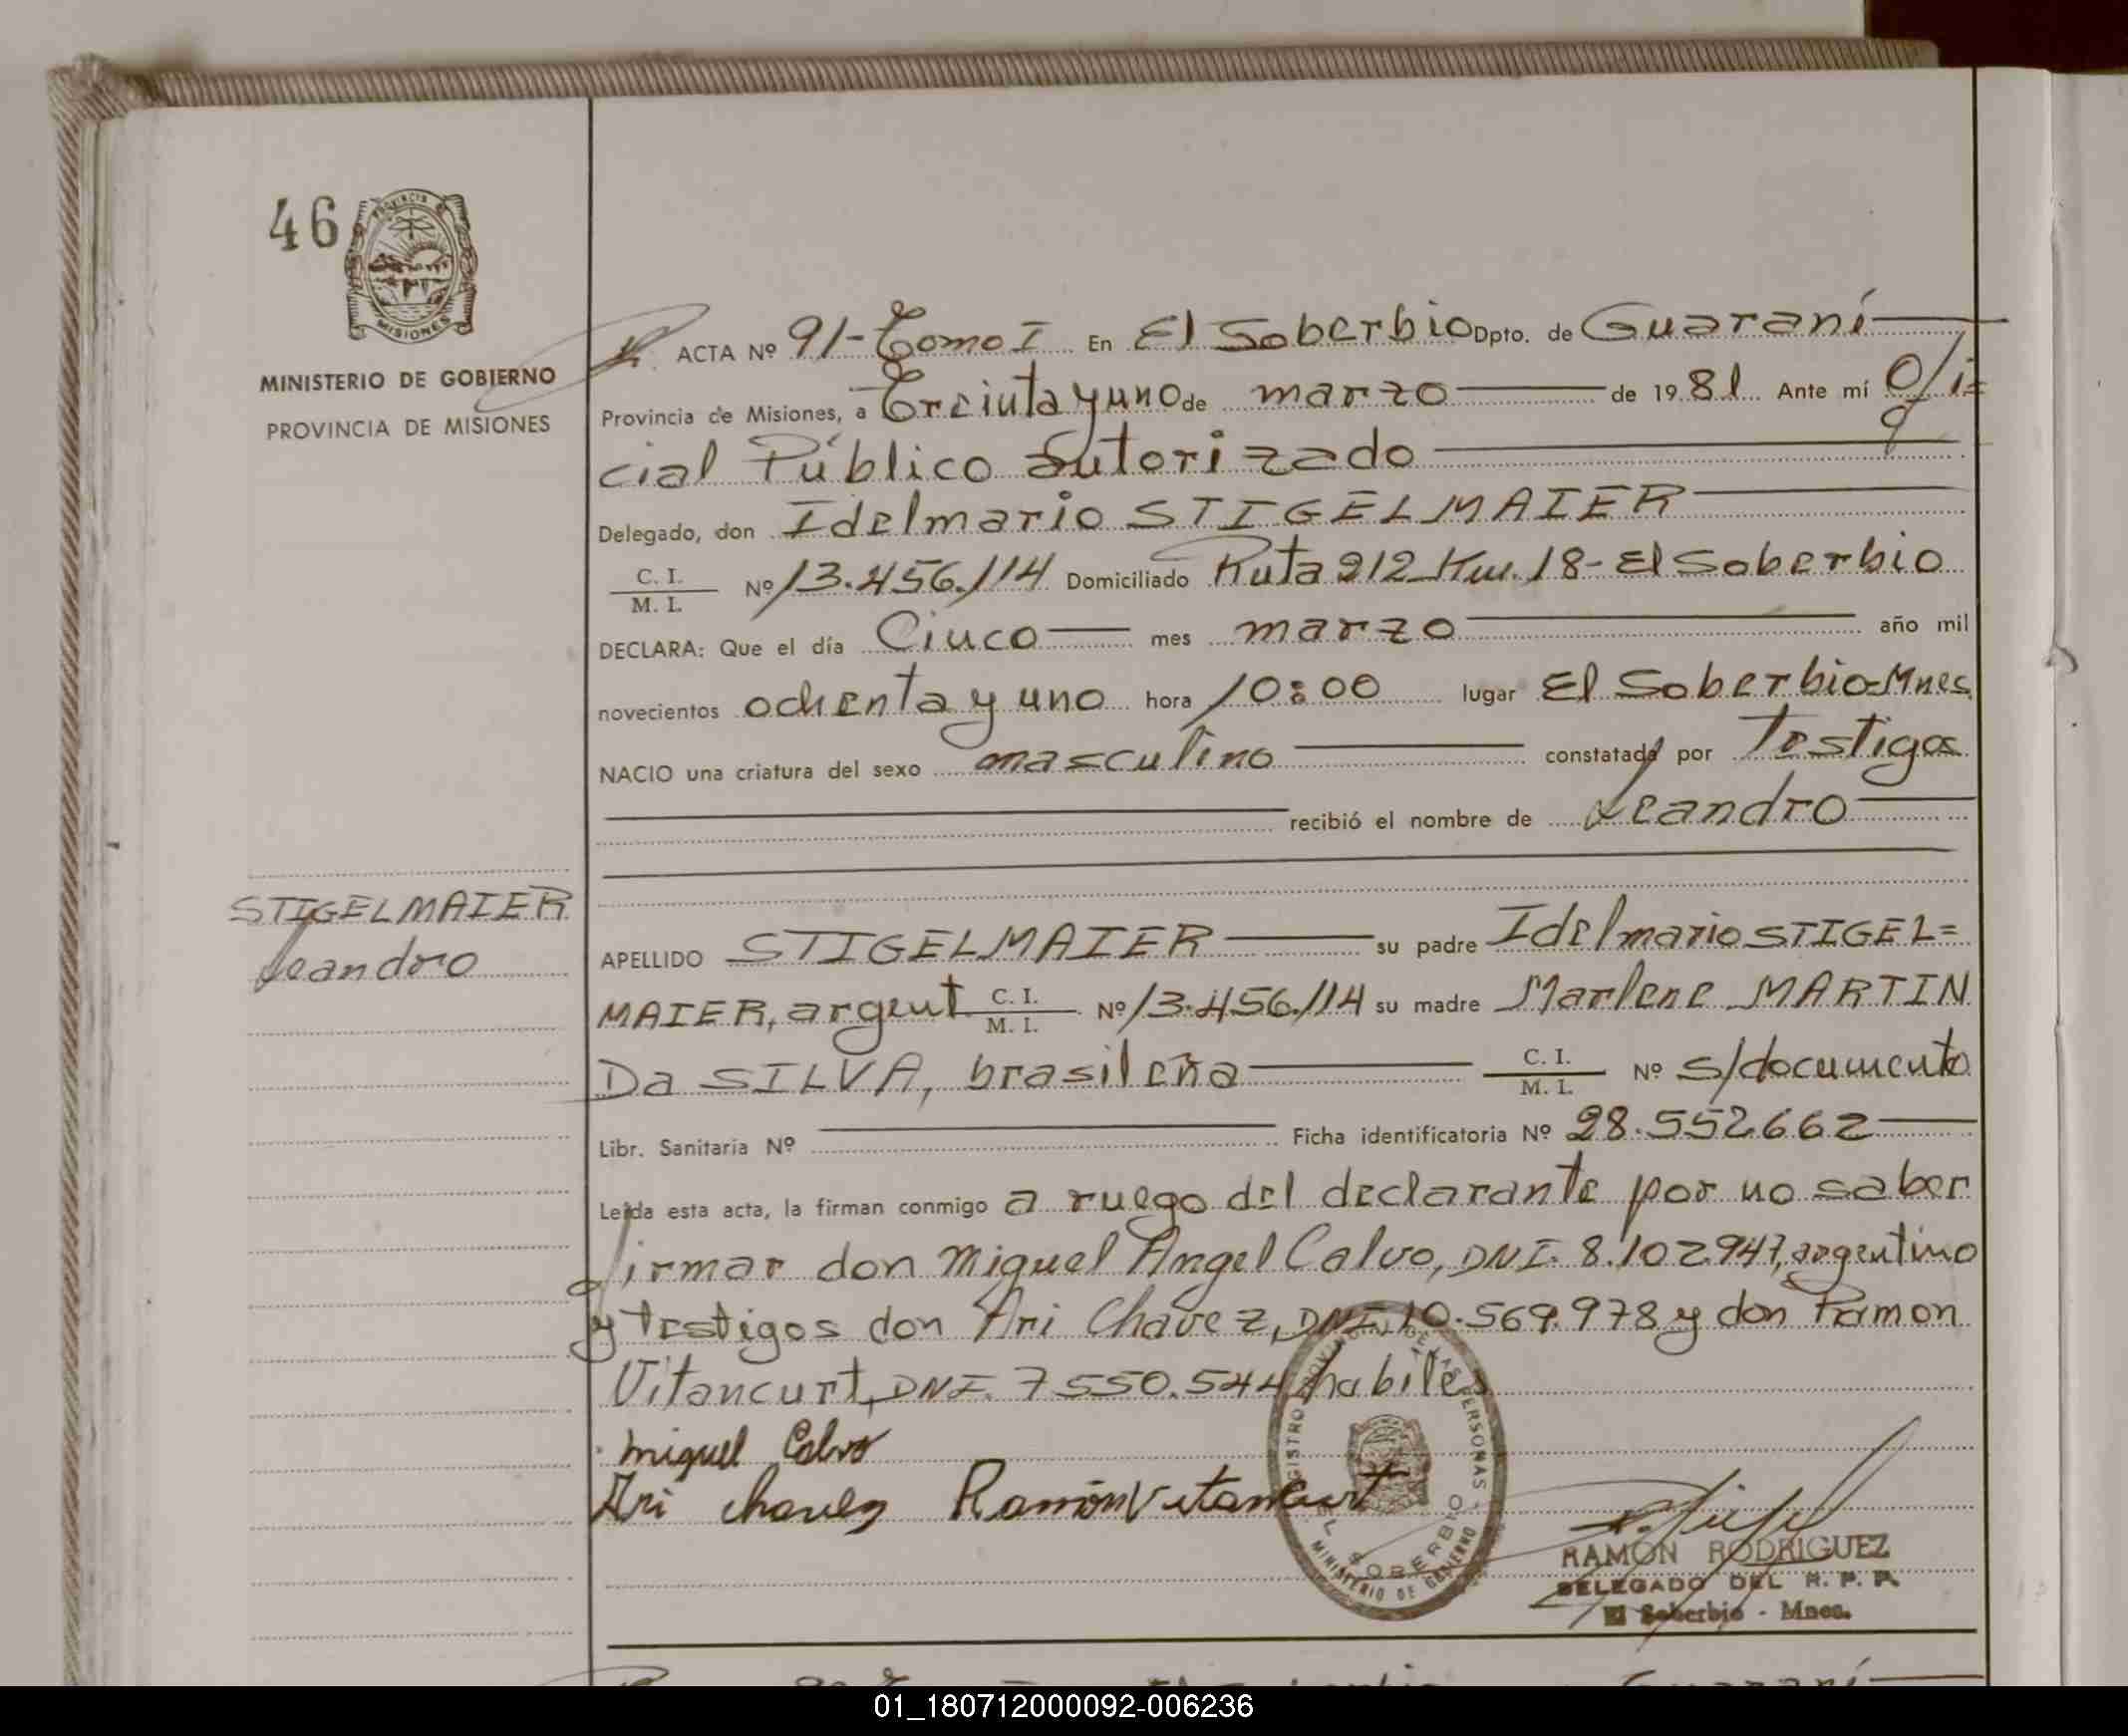 46
PROVINCIA DE
MISIONES
MINISTERIO DE GOBIERNO
PROVINCIA DE MISIONES
STIGELMAIER
Leandro
ACTA Nº 91-Tomo I En El Soberbio Dpto. de Guaraní
Provincia de Misiones, a Treinta y uno de marzo de 1981 Ante mí Ofi=
cial Público Autorizado
Delegado, don Idelmario STIGELMAIER
C. I. / M. I. Nº 13.456.114 Domiciliado Ruta 212 Km. 18- El Soberbio
DECLARA: Que el día Cinco mes marzo año mil
novecientos ochenta y uno hora 10:00 lugar El Soberbio-Mnes
NACIO una criatura del sexo masculino constatado por Testigos
recibió el nombre de Leandro
APELLIDO STIGELMAIER su padre Idelmario STIGEL=
MAIER, argent C. I. / M. I. Nº 13.456.114 su madre Marlene MARTIN
Da SILVA, brasileña C. I. / M. I. Nº s/documento
Libr. Sanitaria Nº Ficha identificatoria Nº 28.552.662
Leída esta acta, la firman conmigo a ruego del declarante por no saber
firmar don Miguel Angel Calvo, DNI. 8.102.947, argentino
y testigos don Ari Chavez, DNI. 10.569.978 y don Ramon
Vitancurt, DNI. 7.550.544 habiles
Miguel Calvo
Ari Chavez Ramón Vitancurt
REGISTRO PROVINCIAL DE LAS PERSONAS
EL SOBERBIO
MINISTERIO DE GOBIERNO
RAMON RODRIGUEZ
DELEGADO DEL R. P. P.
El Soberbio - Mnes.
01_180712000092-006236